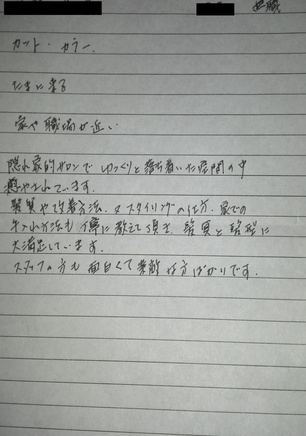 無職
カット・カラー
たまに来る
家や職場が近い
隠れ家的サロンで ゆっくりと落ち着いた空間の中
癒やされています。
髪質や改善方法、又スタイリングの仕方、家での
手入れ方法も丁寧に教えて頂き、髪質と髪型に
大満足しています。
スタッフの方も面白くて素敵な方ばかりです。